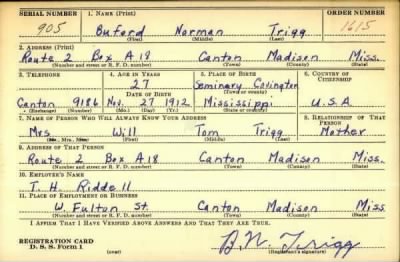 SERIAL NUMBER 1. NAME (Print) ORDER NUMBER
905 Buford Norman Trigg 1615
(First) (Middle) (Last)
2. ADDRESS (Print)
Route 2 Box A 18 Canton Madison Miss.
(Number and street or R. F. D. number) (Town) (County) (State)
3. TELEPHONE 4. AGE IN YEARS 5. PLACE OF BIRTH 6. COUNTRY OF CITIZENSHIP
27 Seminary Covington
DATE OF BIRTH (Town) (County)
Canton 9186 Nov. 27 1912 Mississippi U.S.A.
(Exchange) (Number) (Mo.) (Day) (Yr.) (State or country)
7. NAME OF PERSON WHO WILL ALWAYS KNOW YOUR ADDRESS 8. RELATIONSHIP OF THAT PERSON
Mrs Will Tom Trigg Mother
(Mr., Mrs., Miss) (First) (Middle) (Last)
9. ADDRESS OF THAT PERSON
Route 2 Box A18 Canton Madison Miss.
(Number and street or R. F. D. number) (Town) (County) (State)
10. EMPLOYER'S NAME
T. H. Riddell
11. PLACE OF EMPLOYMENT OR BUSINESS
W. Fulton St. Canton Madison Miss
(Number and street or R. F. D. number) (Town) (County) (State)
I AFFIRM THAT I HAVE VERIFIED ABOVE ANSWERS AND THAT THEY ARE TRUE.
REGISTRATION CARD
D. S. S. Form 1 (over) B. N. Trigg
(Registrant's signature)